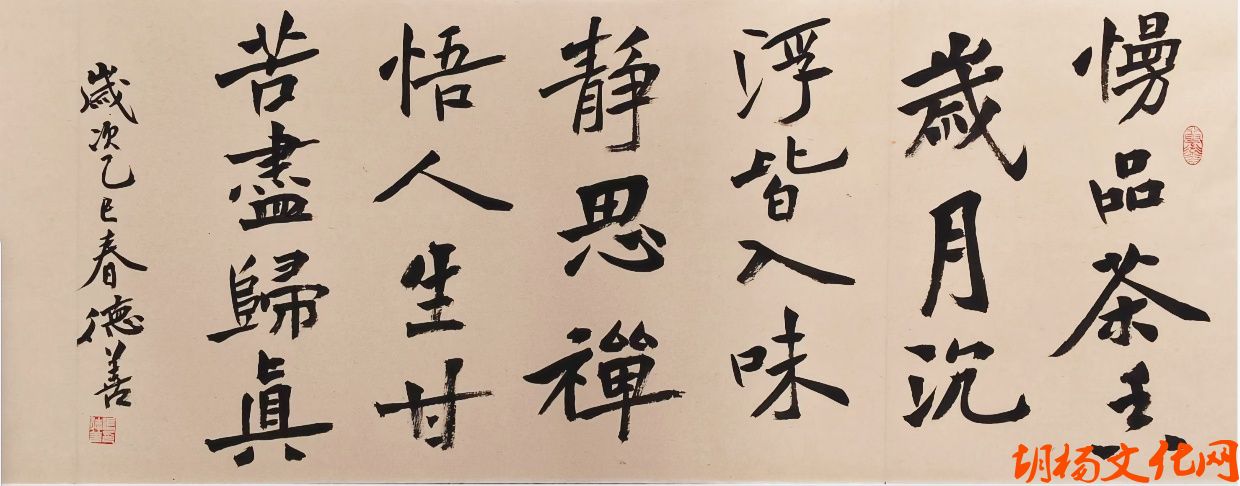 慢品茶
歲月沉
浮皆入味
靜思禪
悟人生甘
苦盡歸眞
歲次乙巳春德善
胡杨文化网